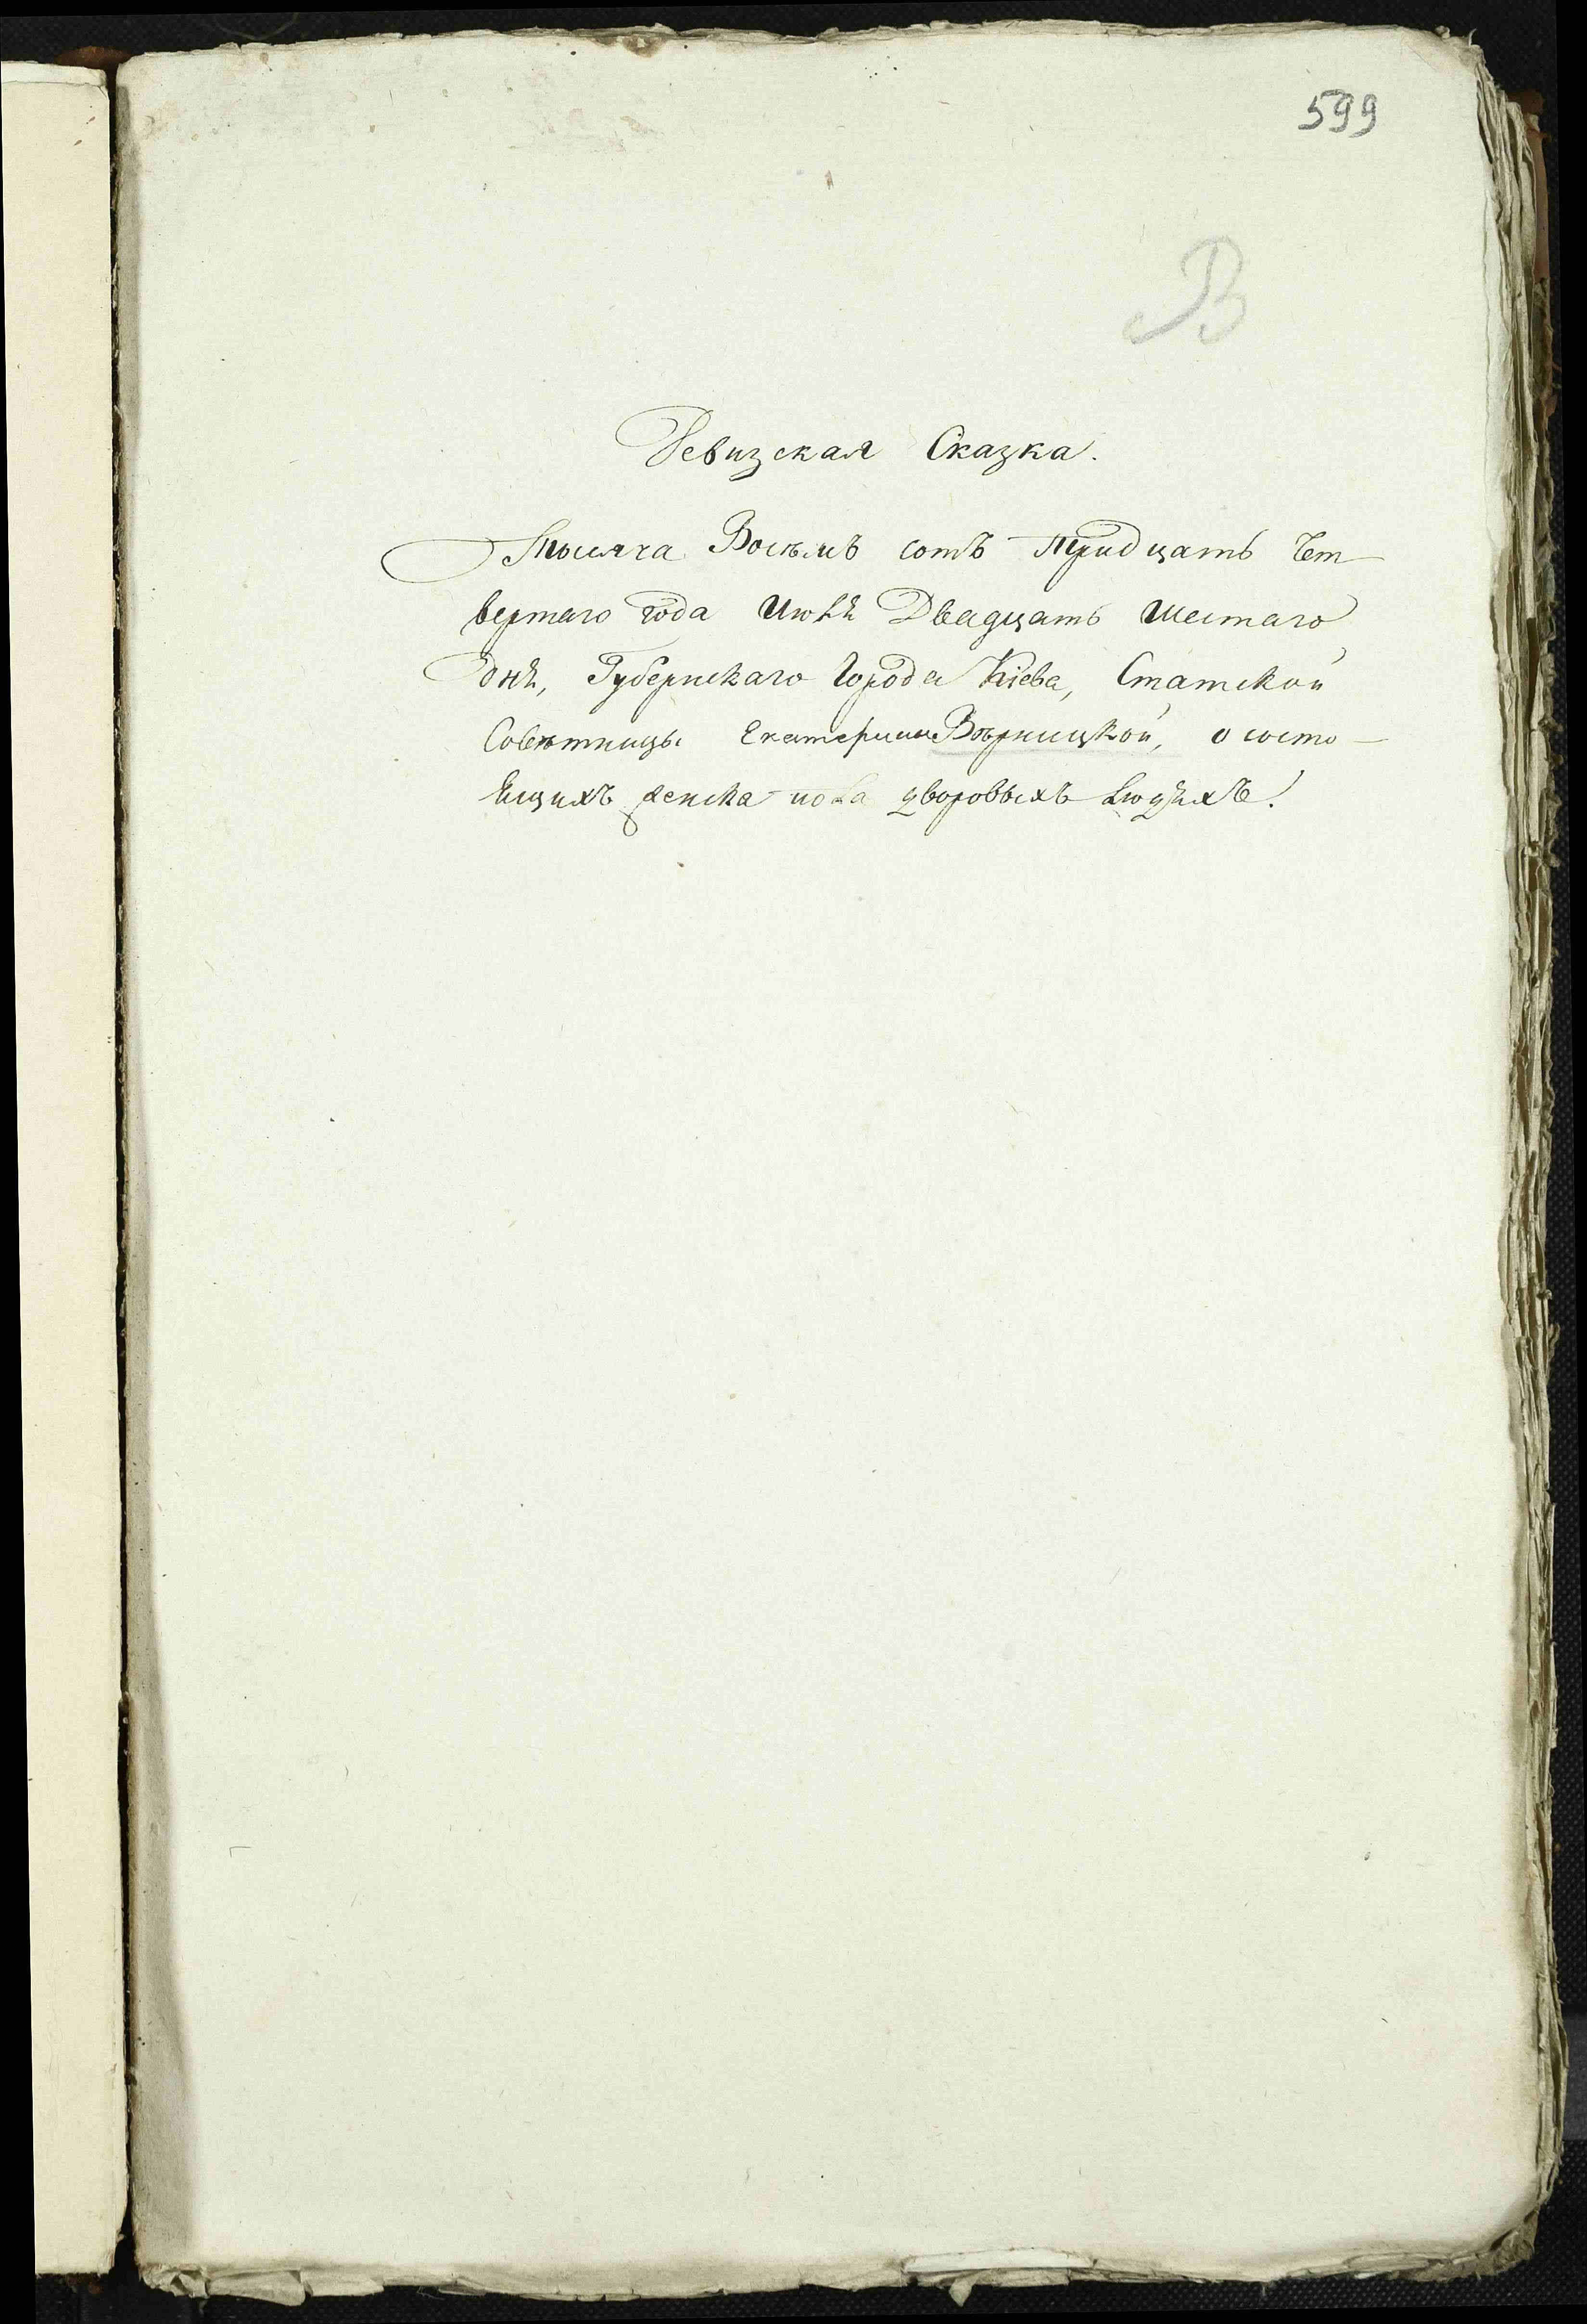 599
В
Ревизская Сказка.
Тысяча Восѣмъ сотъ тридцать Чет-
вертаго года Июля Двадцать шестаго
дня, Губернскаго Города Кіева, Статской
Совѣтницы Екатерины Вѣрницкой, о состо-
ящихъ женска пола дворовыхъ людяхъ!